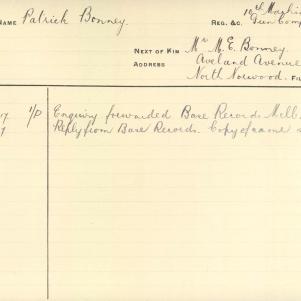 NAME Patrick Bonney. REG. &C. 10th Machin
Gun Comp
NEXT OF KIN Mr M. E. Bonney.
ADDRESS Aveland Avenue
North Norwood.
1/D Enquiry forwarded Base Records Melb.
Reply from Base Records. Copy of same